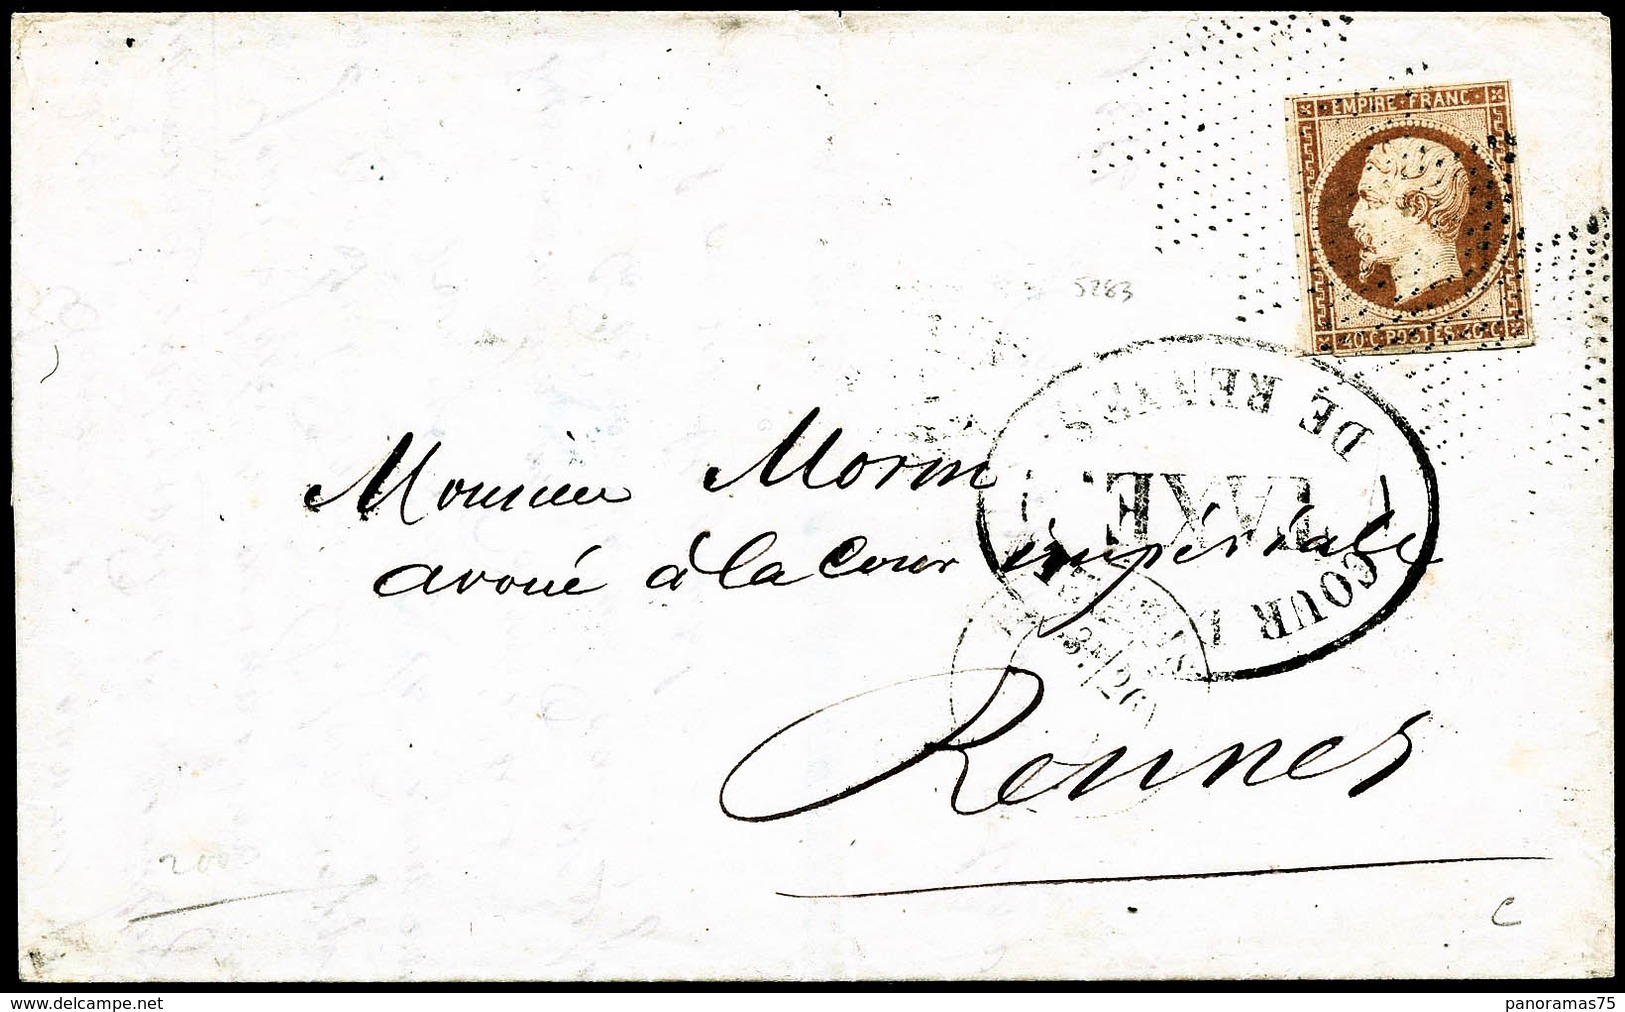 EMPIRE · FRANC ·
40 · C · POSTES · 40 · C
5283
DE RENNES
TAXE.
COUR
Monsieur Morin
avoué à la Cour impériale
26
Rennes
200
C
delcampe.net
panoramas75